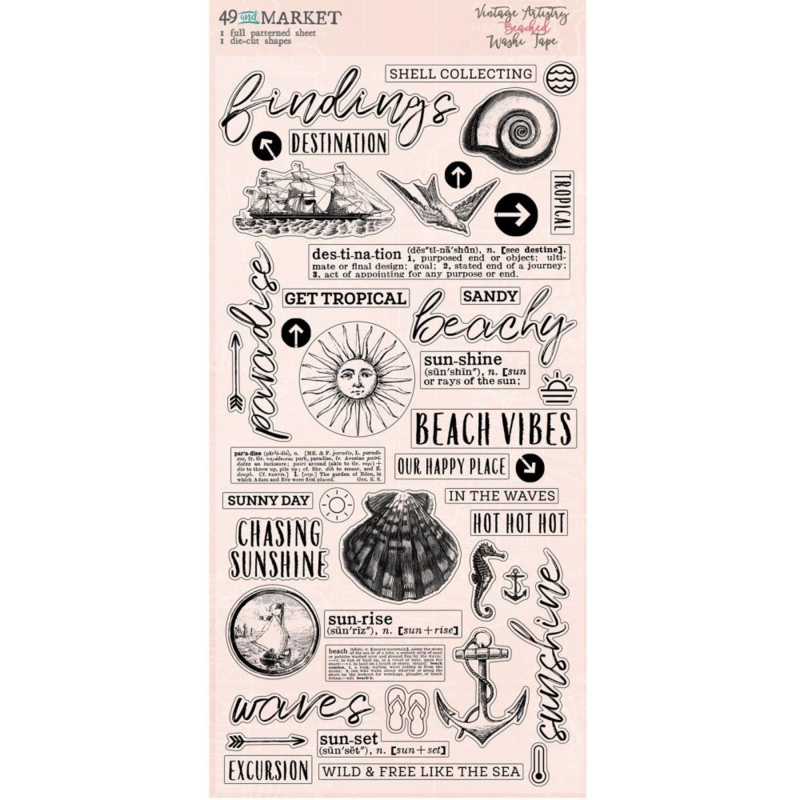 49 and MARKET
1 full patterned sheet
1 die-cut shapes
Vintage Artistry
Beached
Washi Tape
SHELL COLLECTING
findings
DESTINATION
TROPICAL
des·ti·na·tion (dĕs″tĭ-nā′shŭn), n. [see destine],
1, purposed end or object; ulti-
mate or final design; goal; 2, stated end of a journey;
3. act of appointing for any purpose or end.
paradise
GET TROPICAL
SANDY
beachy
sun-shine
(sŭn′shīn″), n. [sun
or rays of the sun;
BEACH VIBES
OUR HAPPY PLACE
par′a·dise
which Adam and Eve were first placed.
SUNNY DAY
IN THE WAVES
CHASING
SUNSHINE
HOT HOT HOT
sun-rise
(sŭn′rīz″), n. [sun+rise]
beach
sunshine
waves
sun-set
(sŭn′sĕt″), n. [sun+set]
EXCURSION
WILD & FREE LIKE THE SEA